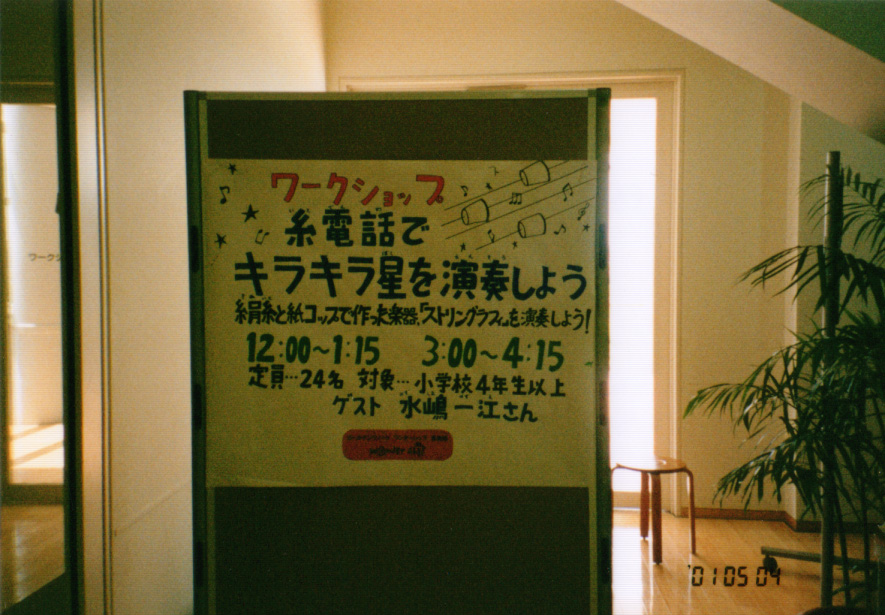 ワークショップ
糸電話で
キラキラ星を演奏しよう
絹糸と紙コップで作った楽器、「ストリングラフィ」を演奏しよう!
12:00～1:15 3:00～4:15
定員…24名 対象…小学校4年生以上
ゲスト 水嶋一江さん
'01 05 04